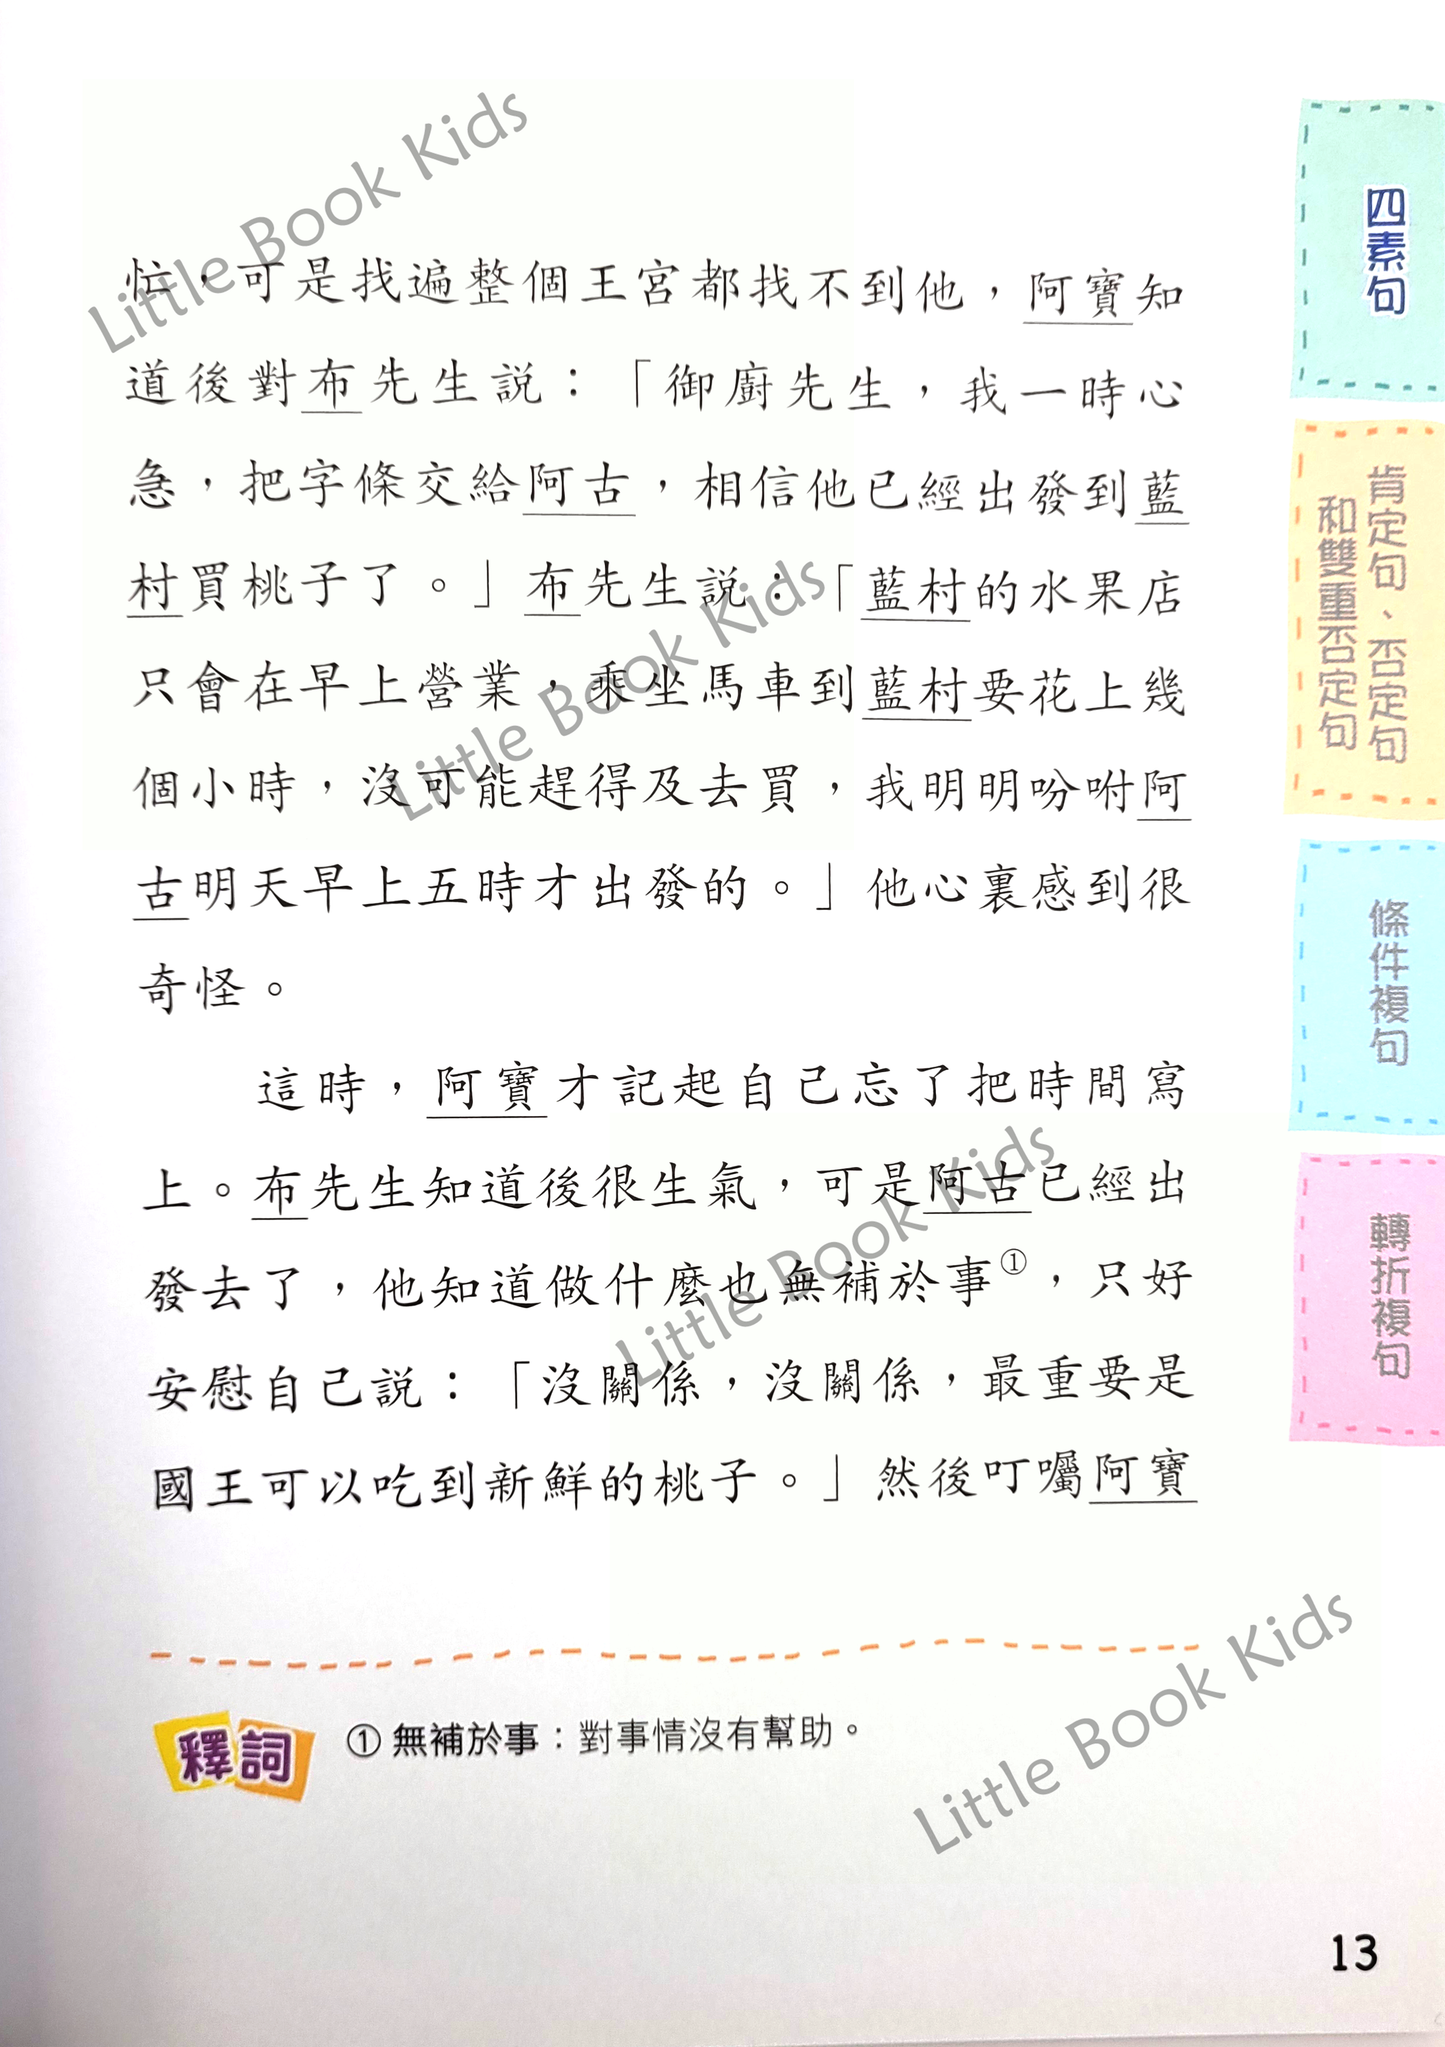 忙，可是找遍整個王宮都找不到他，阿寶知
道後對布先生説：「御廚先生，我一時心
急，把字條交給阿古，相信他已經出發到藍
村買桃子了。」布先生説：「藍村的水果店
只會在早上營業，乘坐馬車到藍村要花上幾
個小時，沒可能趕得及去買，我明明吩咐阿
古明天早上五時才出發的。」他心裏感到很
奇怪。
這時，阿寶才記起自己忘了把時間寫
上。布先生知道後很生氣，可是阿古已經出
發去了，他知道做什麼也無補於事①，只好
安慰自己説：「沒關係，沒關係，最重要是
國王可以吃到新鮮的桃子。」然後叮囑阿寶
釋詞
① 無補於事：對事情沒有幫助。
13
四素句
肯定句、否定句
和雙重否定句
條件複句
轉折複句
Little Book Kids
Little Book Kids
Little Book Kids
Little Book Kids